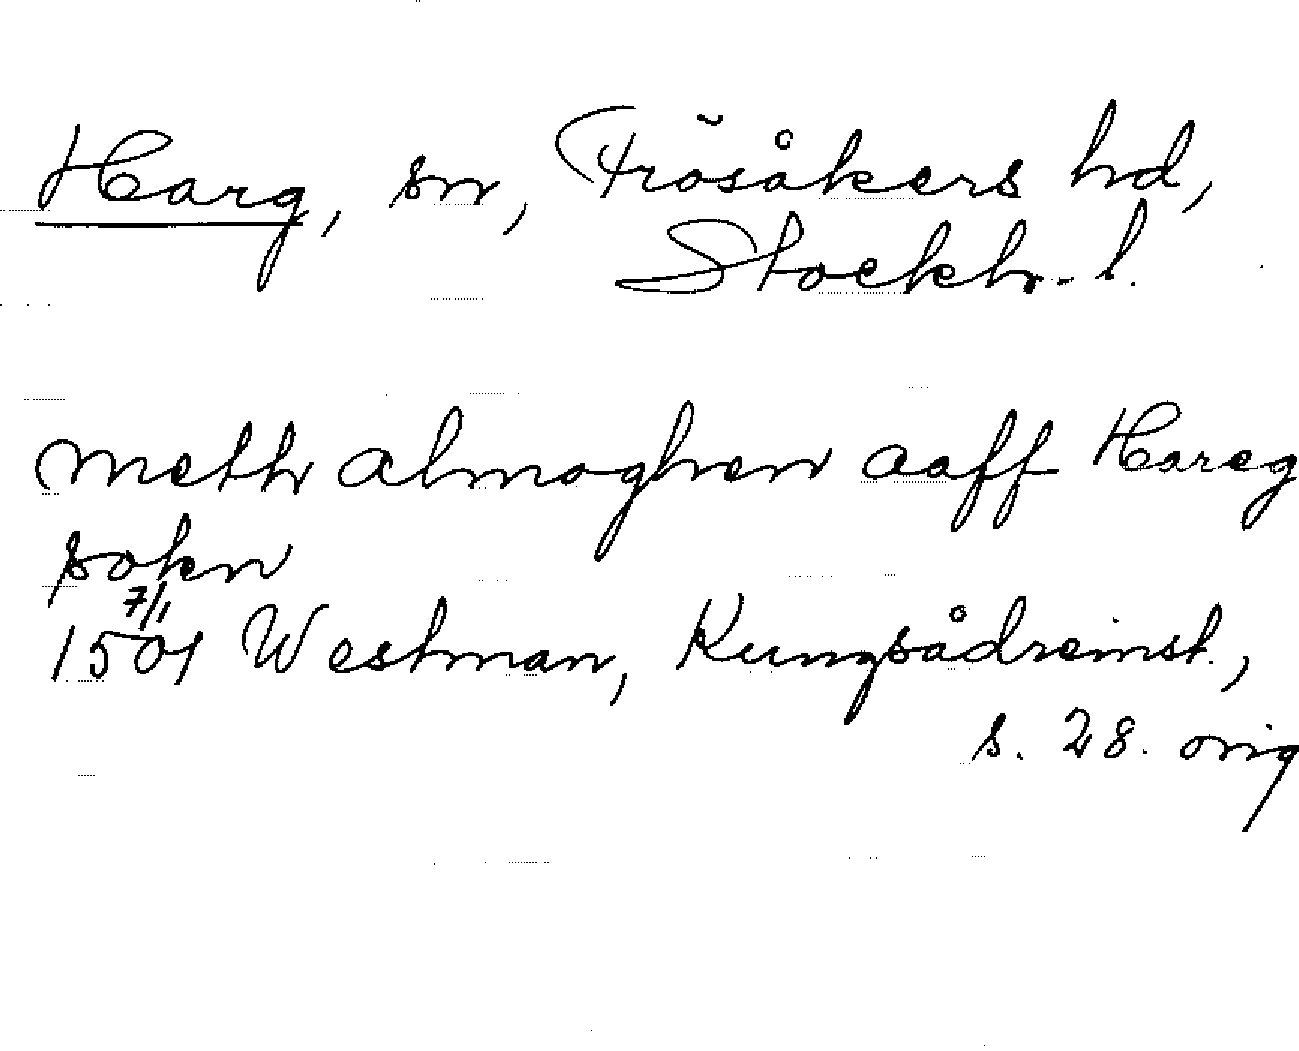 Harg, sn, Frösåkers hd,
Stockh. l.
meth almoghen aaff Hareg
sokn
7/1
1501 Westman, Kungsådreinst.,
s. 28. orig